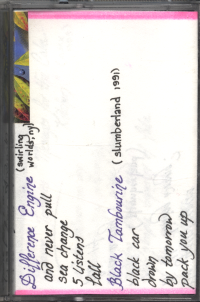 Difference Engine (swirling worlds, ny)
and never pull
sea change
5 Listens
fall
Black Tambourine (slumberland 1991)
black car
drown
by tomorrow
pack you up